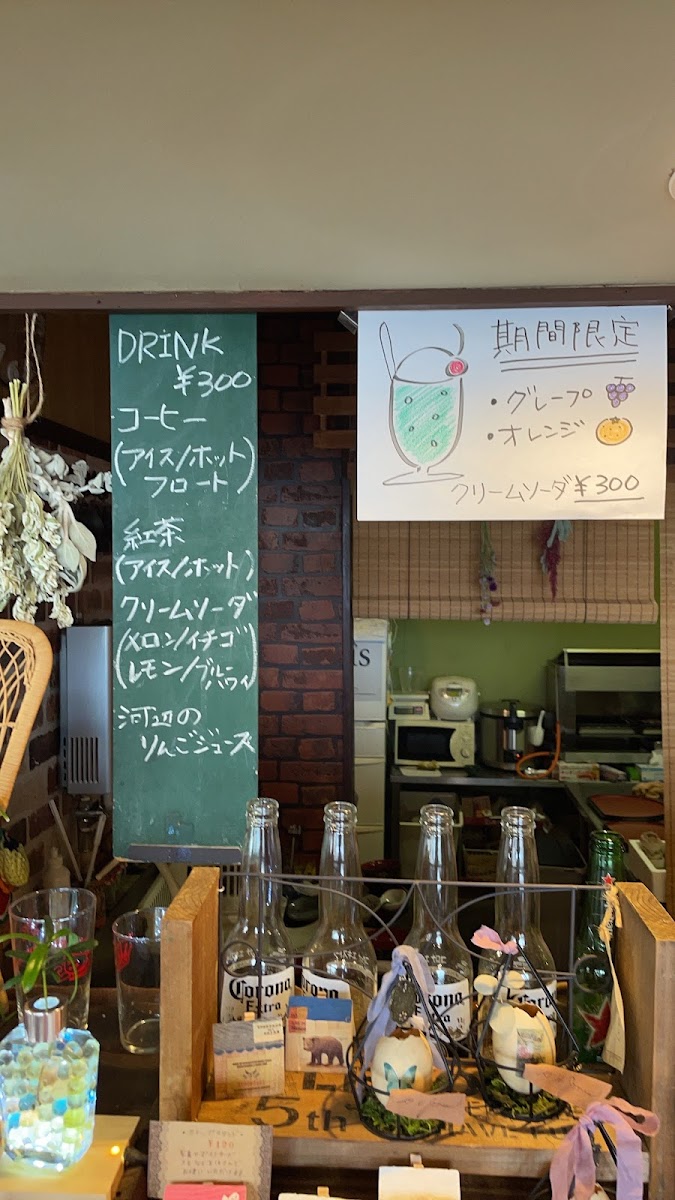 DRINK
¥300
コーヒー
(アイス/ホット
フロート)
紅茶
(アイス/ホット)
クリームソーダ
(メロン/イチゴ
レモン/ブルー
ハワイ)
河辺の
りんごジュース
期間限定
・グレープ
・オレンジ
クリームソーダ ¥300
Corona
Extra
Corona
5th